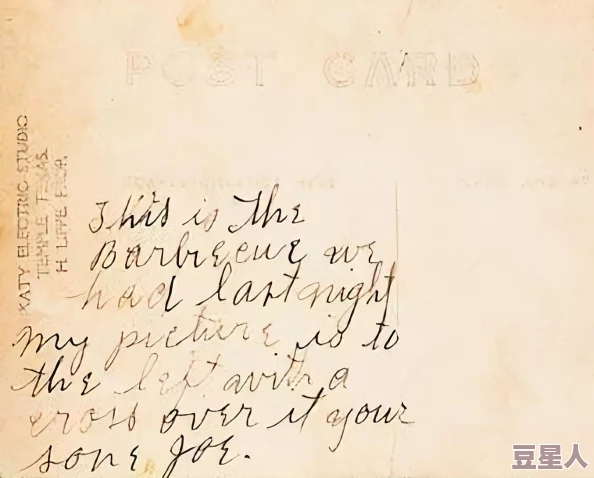 POST CARD
KATY ELECTRIC STUDIO
TEMPLE TEXAS.
H. LIPPE PROP.
This is the
Barbecue we
had last night
my picture is to
the left with a
cross over it your
sone Joe.
豆星人